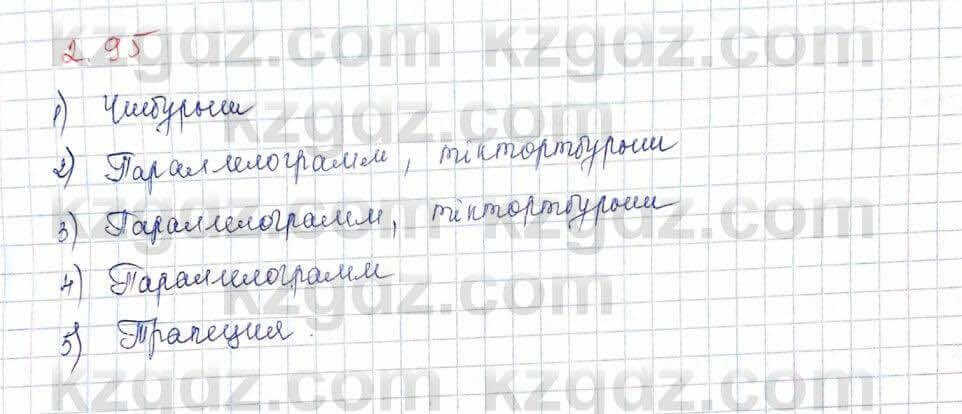 2.95
1) Үшбұрыш
2) Параллелограмм, тіктөртбұрыш
3) Параллелограмм, тіктөртбұрыш
4) Параллелограмм
5) Трапеция.
kzgdz.com